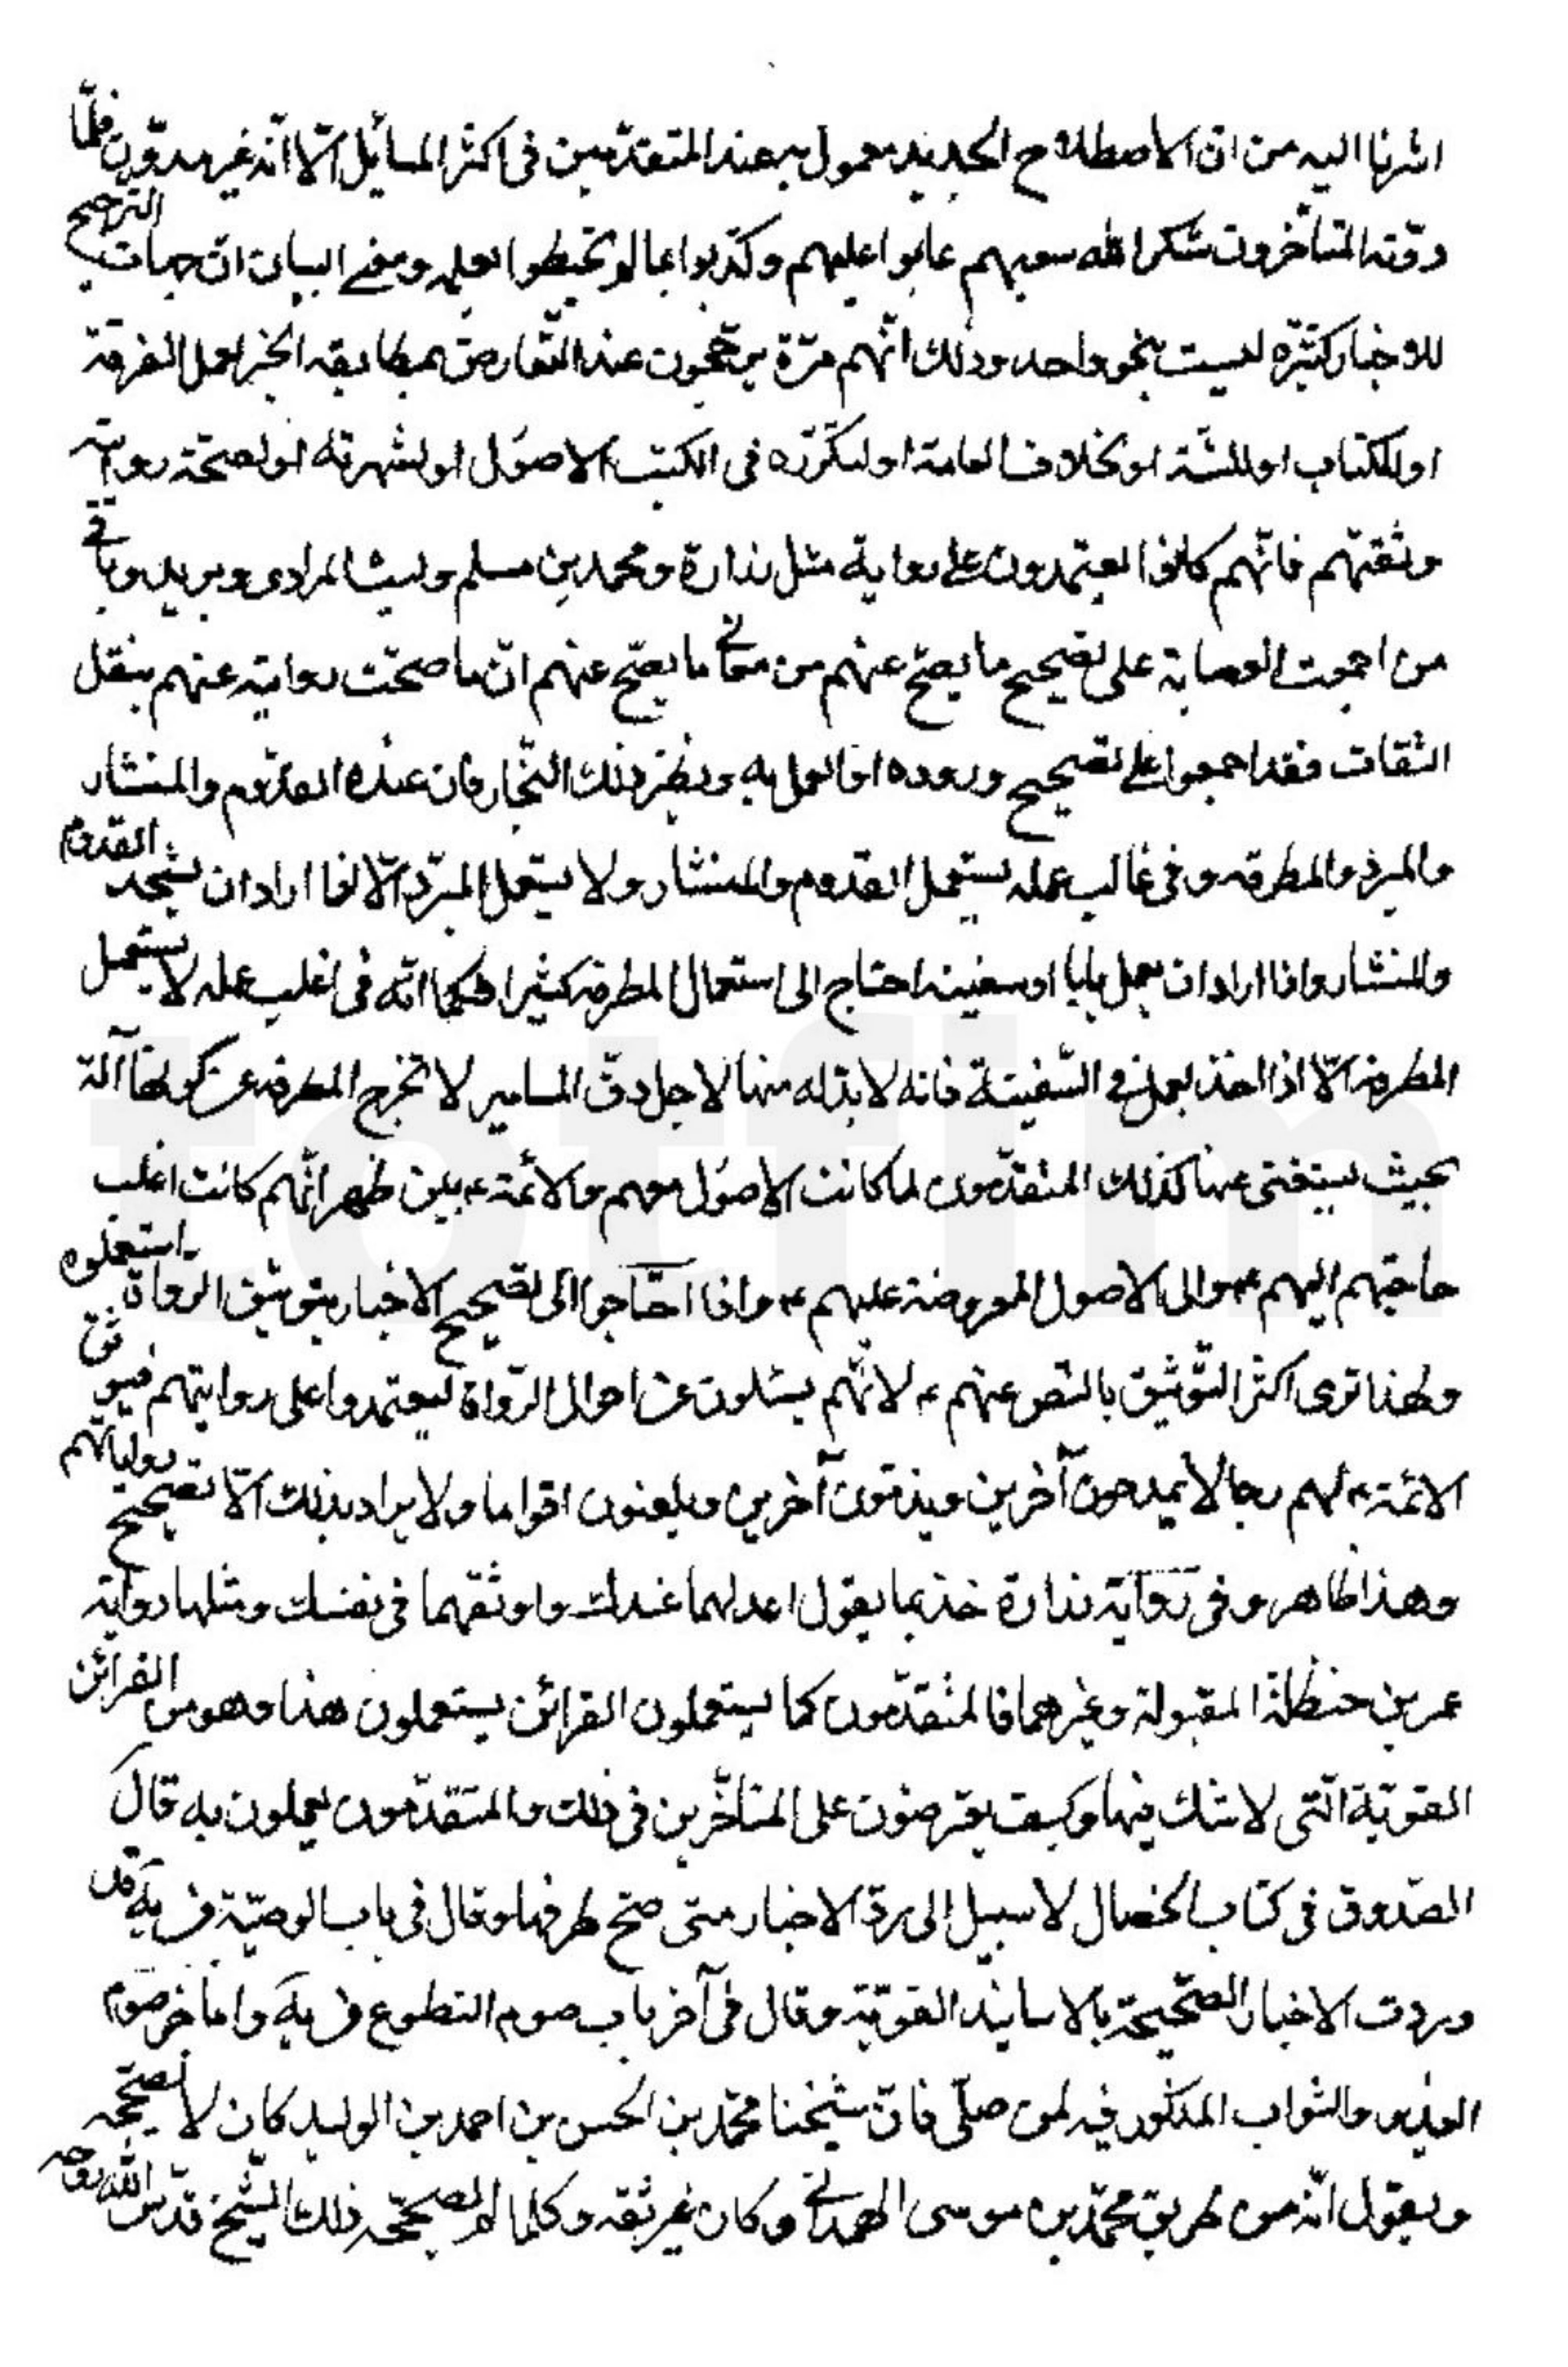 اشرنا اليه من ان الاصطلاح الجديد معمول به عند المتقدّمين فى اكثر المسائل الّا انّه غير مدوّن فلمّا
دوّنه المتأخرون شكر الله سعيهم عابوا عليهم وكذّبوا بما لم يحيطوا بعلمه ومن البيان انّ جهات الترجيح
للاخبار كثيره ليست بنحو واحد وذلك انّهم مرّة يرجّحون عند التّعارض بمطابقه الخبر لعمل الفرقة
او للكتاب او للسّنة او بخلاف العامة او لتكرّره فى الكتب الاصول او لشهرته او لصحّة روايته
وثقتهم فانّهم كانوا يعتمدون على رواية مثل زرارة ومحمد بن مسلم وليث المرادى وبريد وباقى
من اجمعت العصابة على تصحيح ما يصحّ عنهم من معانى ما يصحّ عنهم انّ ما صحّت روايته عنهم بنقل
الثقات فقد اجمعوا على تصحيح وروده او العمل به ونظير ذلك النّجار فان عنده القدّوم والمنشار
والمبرد والمطرقه وفى غالب عمله يستعمل القدوم والمنشار ولا يستعمل المبرّد الّا اذا اراد ان يشحد القدوم
والمنشار واذا اراد ان يعمل بابا او سفينه احتاج الى استعمال المطرقه كثيرا فكما انّه فى اغلب عمله لا يستعمل
المطرقة الّا اذا اخذ يعمل فى السّفينة فانه لا بدّ له منها لاجل دقّ المسامير لا تخرج المطرقه عن كونها آلة
بحيث يستغنى عنها كذلك المتقدّمون لما كانت الاصول معهم والائمة ع بين ظهرانيهم كانت اغلب
حاجتهم اليهم ع والى الاصول المعروضة عليهم ع واذا احتاجوا الى تصحيح الاخبار بتوثيق الرواة استعملوه
ولهذا ترى اكثر التّوثيق بالنّص عنهم ع لانّهم يسئلون عن احوال الرّواة ليعتمدوا على روايتهم فيوثق
الائمة ع لهم رجالا يمدحون آخرين ويذمّون آخرين ويلعنون اقواما ولا يراد بذلك الّا تصحيح رواياتهم
وهذا ظاهر وفى رواية زرارة خذ بما يقول اعدلهما عندك واوثقهما فى نفسك ومثلها رواية
عمر بن حنظلة المقبولة وغيرهما فالمتقدّمون كما يستعملون القرائن يستعملون هذا وهو من القرائن
القويّة الّتى لا شك فيها وكيف يعترضون على المتأخّرين فى ذلك والمتقدّمون يعملون به قال
الصّدوق فى كتاب الخصال لا سبيل الى ردّ الاخبار متى صحّ طرقها وقال فى باب الوصيّة فى يه قد
وردت الاخبار الصّحيحة بالاسانيد القويّة وقال فى آخر باب صوم التطوع فى يه واما خبر صوم
الغدير والثواب المذكور فيه لمن صلّى فانّ شيخنا محمّد بن الحسن بن احمد بن الوليد كان لا يصحّحه
ويقول انّه من طريق محمّد بن موسى الهمدانى وكان غير ثقه وكلما لم يصحّحه ذلك الشّيخ قدّس الله روحه